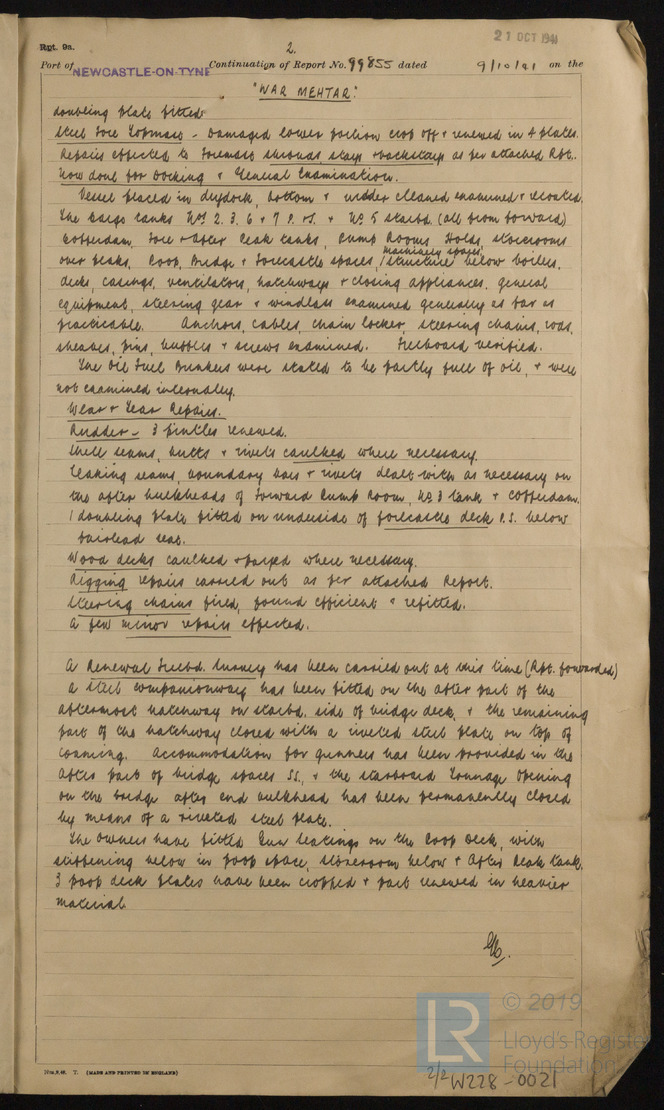 Rpt. 9a.
2.
21 OCT 1941
Port of NEWCASTLE-ON-TYNE Continuation of Report No. 99855 dated 9/10/41 on the
"WAR MEHTAR."
doubling plate fitted.
Steel Fore Topmast - Damaged lower portion crop off & renewed in 4 plates.
Repairs effected to Foremast shrouds stays & backstays as per attached Rpt.
Now done for Docking & General Examination.
Vessel placed in drydock, bottom & rudder cleaned examined & recoated.
The cargo tanks Nos 2. 3. 6 & 7 P. & S. & No 5 starbd. (all from forward)
Cofferdam, Fore & After Peak tanks, Pump Rooms Holds, storerooms
machinery spaces,
over peaks, Poop, Bridge & Forecastle spaces, / structure below boilers,
decks, casings, ventilators, hatchways & closing appliances, general
equipment, steering gear & windlass examined generally as far as
practicable. Anchors, cables, chain locker, steering chains, rods,
sheaves, pins, & screws examined. Freeboard verified.
The Oil Fuel Bunkers were stated to be partly full of oil, & were
not examined internally.
Wear & Tear Repairs.
Rudder - 3 pintles renewed.
Shell seams, butts & rivets caulked where necessary.
Leaking seams, boundary bars & rivets dealt with as necessary on
the after bulkheads of Forward Pump Room, No. 3 tank & Cofferdam.
1 doubling plate fitted on underside of forecastle deck P.S. below
fairlead seat.
Wood decks caulked & payed where necessary.
Rigging repairs carried out as per attached Report.
Steering chains fired, found efficient & refitted.
A few minor repairs effected.
A Renewal Freebd. Survey has been carried out at this time (Rpt. forwarded)
A steel companionway has been fitted on the after part of the
aftermost hatchway on starbd. side of bridge deck, & the remaining
part of the hatchway closed with a riveted steel plate on top of
coaming. Accommodation for gunners has been provided in the
after part of bridge spaces SS., & the starboard Tonnage Opening
on the bridge after end bulkhead has been permanently closed
by means of a riveted steel plate.
The owners have fitted Gun Seatings on the Poop Deck, with
stiffening below in poop space, storeroom below & After Peak tank.
3 poop deck plates have been cropped & part renewed in heavier
material.
(MADE AND PRINTED IN ENGLAND)
LR
© 2019
Lloyd's Register
Foundation
2/2 W228-0021